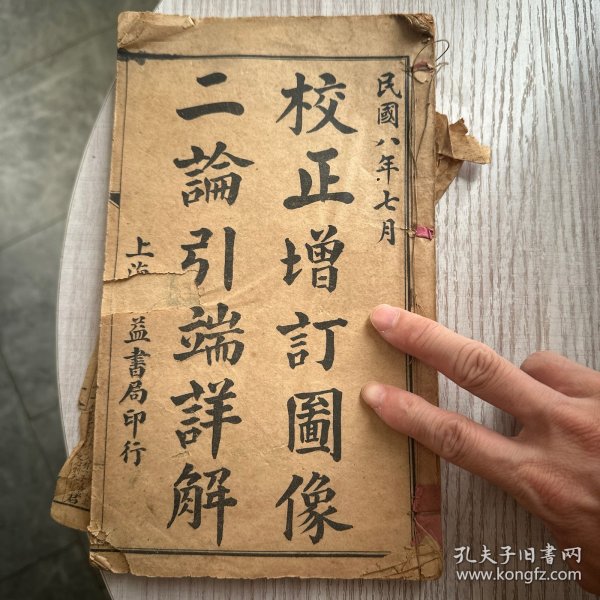 民國八年七月
校正增訂圖像
二論引端詳解
上海 益書局印行
孔夫子旧书网
www.kongfz.com